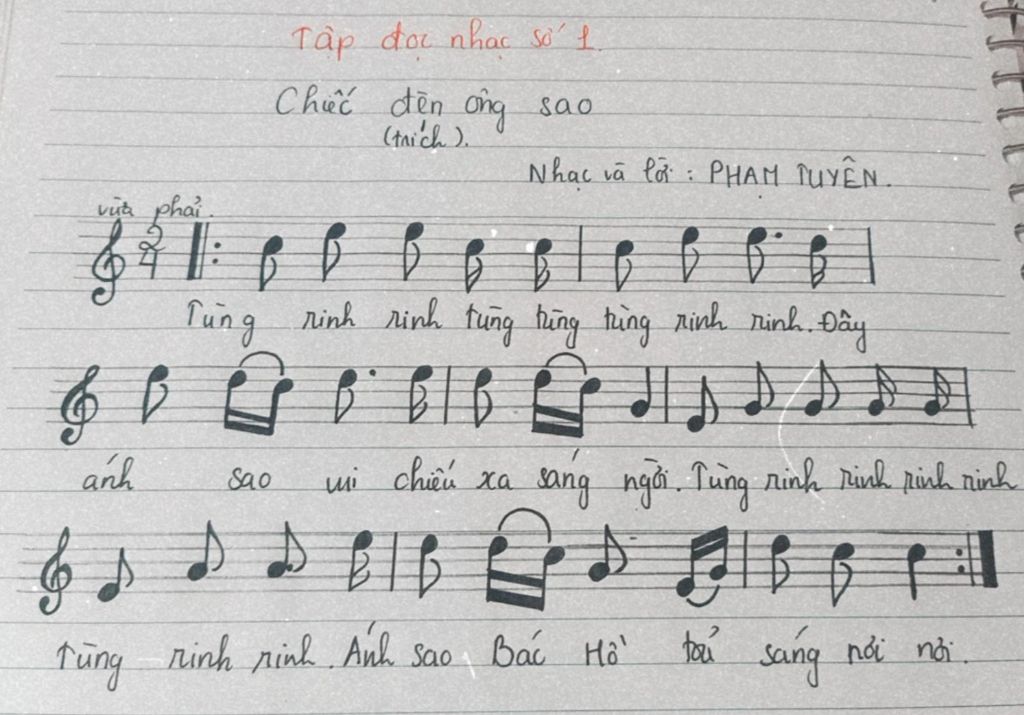 Tập đọc nhạc số 1.
Chiếc đèn ông sao
(trích).
Nhạc và lời : PHẠM TUYÊN.
vừa phải.
2
4
Tùng rinh rinh tùng tùng tùng rinh rinh. Đây
ánh sao vui chiếu xa sáng ngời. Tùng rinh rinh rinh rinh
Tùng rinh rinh. Ánh sao Bác Hồ toả sáng nơi nơi.